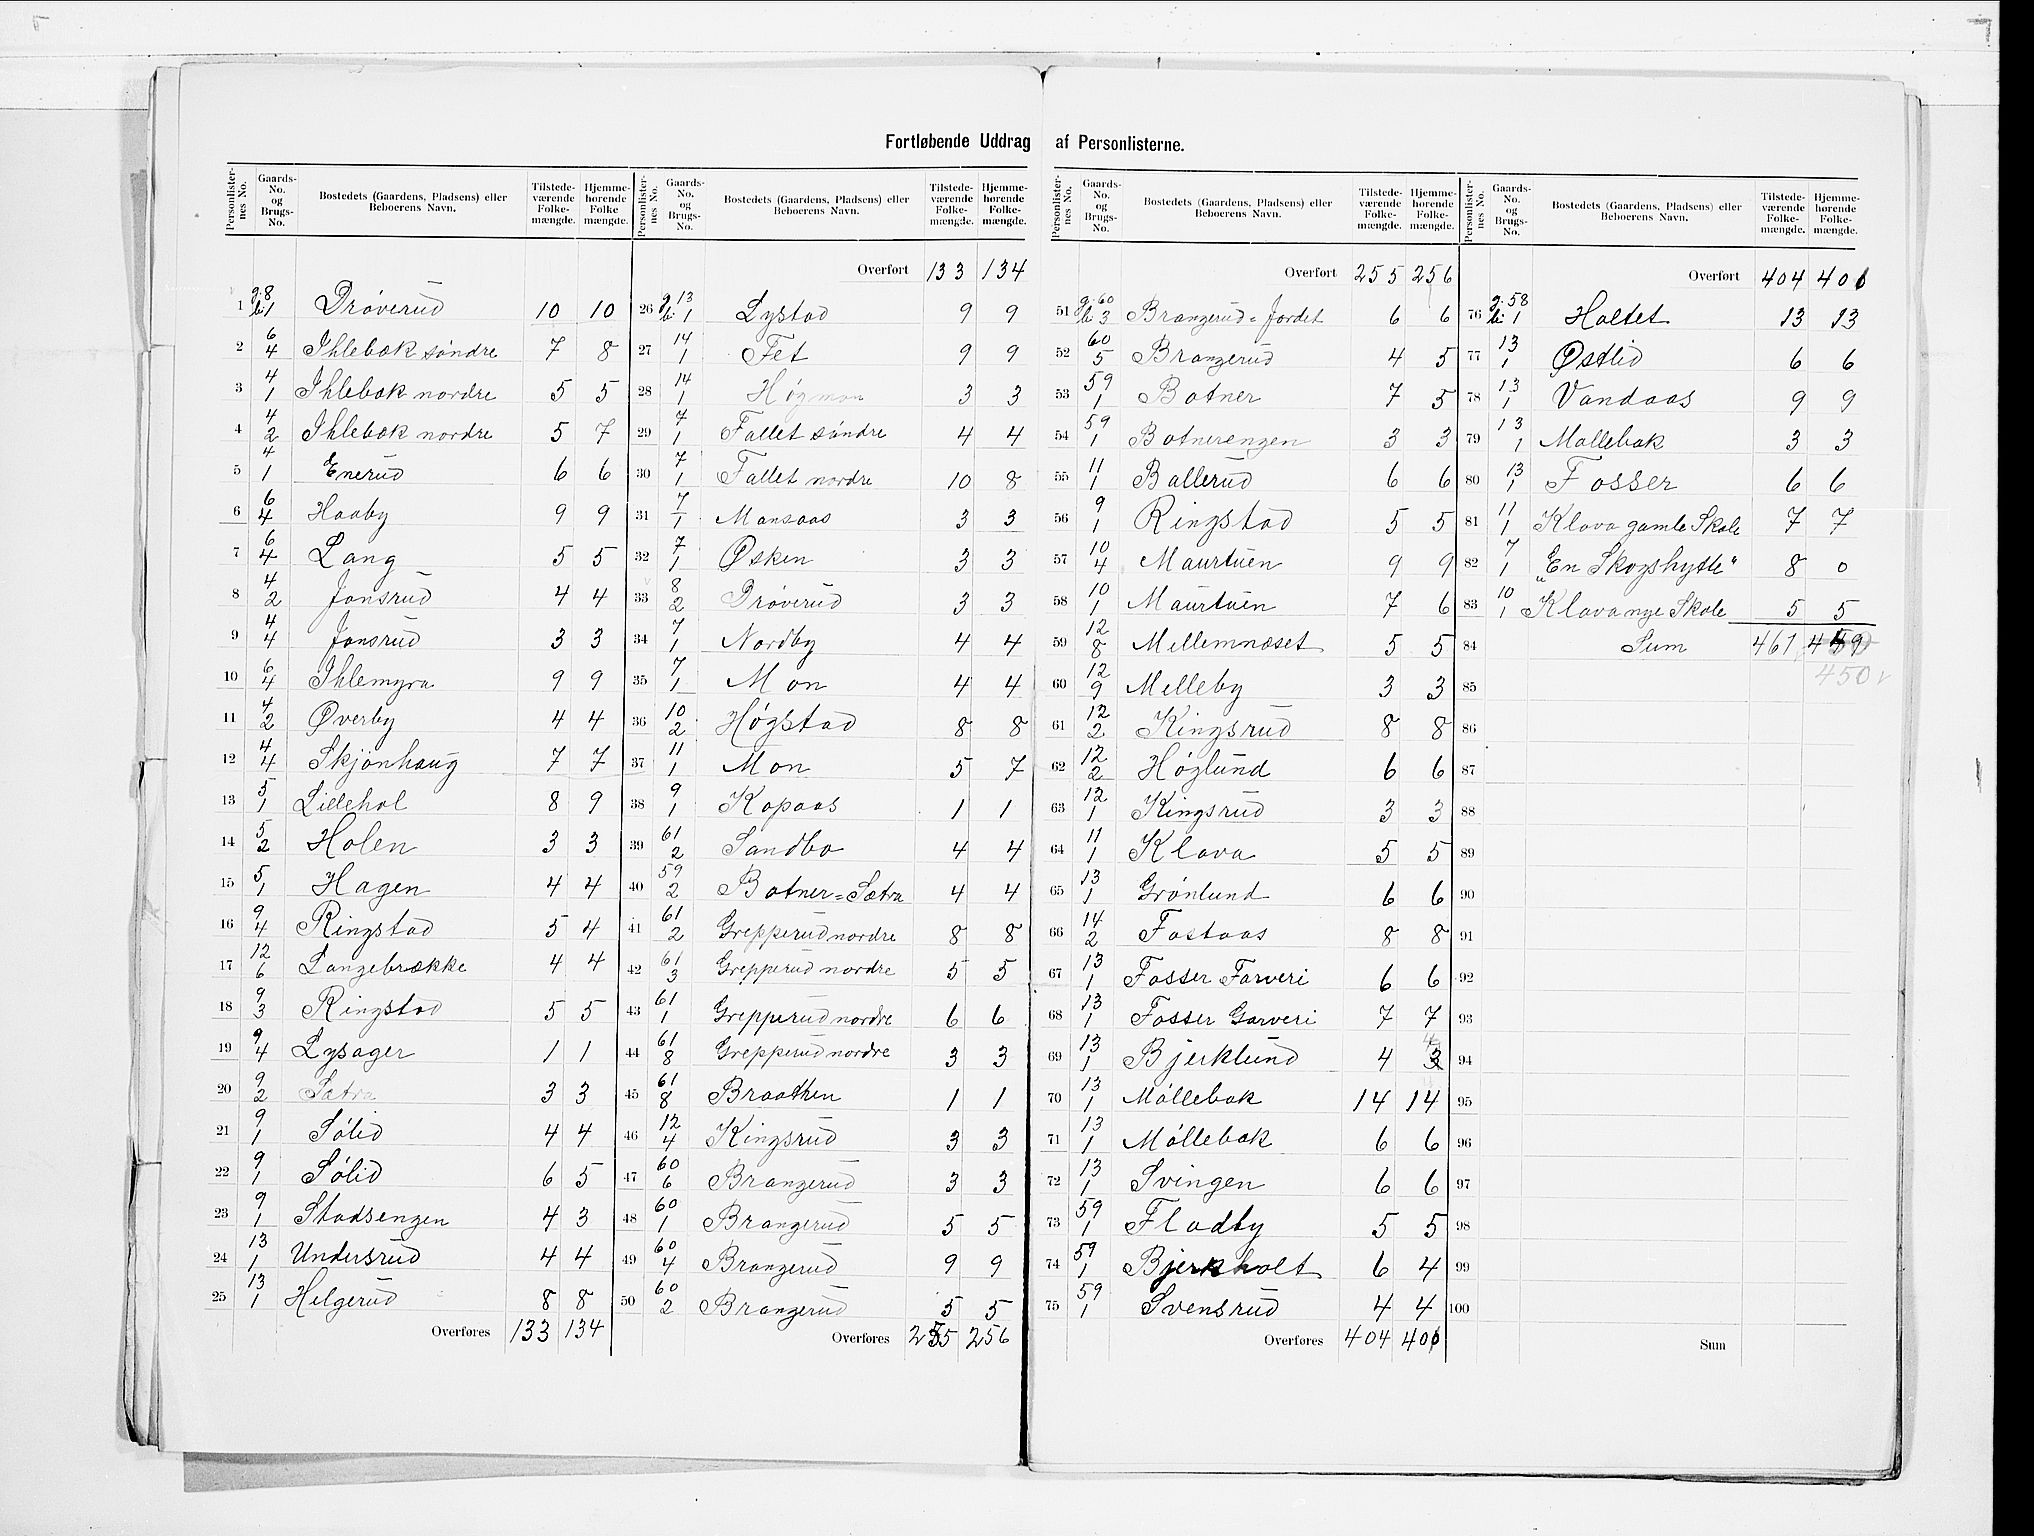 Fortløbende Uddrag af Personlisterne.
Personlister-nes No. | Gaards-No. og Brugs-No. | Bostedets (Gaardens, Pladsens) eller Beboerens Navn. | Tilstede-værende Folke-mængde. | Hjemme-hørende Folke-mængde.
1 g: 8 b: 1 Drøverud 10 10
2 6 4 Ihlebæk søndre 7 8
3 4 1 Ihlebæk nordre 5 5
4 4 2 Ihlebæk nordre 5 7
5 4 1 Enerud 6 6
6 6 4 Haaby 9 9
7 6 4 Lang 5 5
8 4 2 Jonsrud 4 4
9 4 4 Jonsrud 3 3
10 6 4 Ihlemyra 9 9
11 4 2 Øverby 4 4
12 4 4 Skjønhaug 7 7
13 5 1 Lidehol 8 9
14 5 2 Holen 3 3
15 5 1 Hagen 4 4
16 9 4 Ringstad 5 4
17 12 6 Langebrække 4 4
18 9 3 Ringstad 5 5
19 9 4 Lysager 1 1
20 9 2 Sætra 3 3
21 9 1 Sølid 4 4
22 9 1 Sølid 6 5
23 9 1 Stadsengen 4 3
24 13 1 Undersrud 4 4
25 13 1 Helgerud 8 8
Overføres 133 134
Personlister-nes No. | Gaards-No. og Brugs-No. | Bostedets (Gaardens, Pladsens) eller Beboerens Navn. | Tilstede-værende Folke-mængde. | Hjemme-hørende Folke-mængde.
Overført 133 134
26 g: 13 b: 1 Lystad 9 9
27 14 1 Fet 9 9
28 14 1 Høgmon 3 3
29 7 1 Fallet søndre 4 4
30 7 1 Fallet nordre 10 8
31 7 1 Monsaas 3 3
32 7 1 Øsken 3 3
33 8 2 Drøverud 3 3
34 7 1 Nordby 4 4
35 7 1 Mon 4 4
36 10 2 Høgstad 8 8
37 11 1 Mon 5 7
38 9 1 Kopaas 1 1
39 61 2 Sandbo 4 4
40 59 2 Botner=Sætra 4 4
41 61 2 Grepperud nordre 8 8
42 61 3 Grepperud nordre 5 5
43 61 1 Grepperud nordre 6 6
44 61 8 Grepperud nordre 3 3
45 61 8 Braathen 1 1
46 12 4 Kingsrud 3 3
47 60 6 Brangerud 3 3
48 60 1 Brangerud 5 5
49 60 4 Brangerud 9 9
50 60 2 Brangerud 5 5
Overføres 255 256
Personlister-nes No. | Gaards-No. og Brugs-No. | Bostedets (Gaardens, Pladsens) eller Beboerens Navn. | Tilstede-værende Folke-mængde. | Hjemme-hørende Folke-mængde.
Overført 255 256
51 g: 60 b: 3 Brangerud=Jordet 6 6
52 60 5 Brangerud 4 5
53 59 1 Botner 7 5
54 59 1 Botnerengen 3 3
55 11 1 Ballerud 6 6
56 9 1 Ringstad 5 5
57 10 4 Maurtuen 9 9
58 10 1 Maurtuen 7 6
59 12 8 Mellemnæset 5 5
60 12 9 Melleby 3 3
61 12 2 Kingsrud 8 8
62 12 2 Høglund 6 6
63 12 1 Kingsrud 3 3
64 11 1 Klova 5 5
65 13 1 Grønlund 6 6
66 14 2 Fostaas 8 8
67 13 1 Fosser Farveri 6 6
68 13 1 Fosser Garveri 7 7
69 13 1 Bjerklund 4 3
70 13 1 Møllebæk 14 14
71 13 1 Møllebæk 6 6
72 13 1 Svingen 6 6
73 59 1 Fladby 5 5
74 59 1 Bjerkholt 6 4
75 59 1 Svensrud 4 4
Overføres 404 401
Personlister-nes No. | Gaards-No. og Brugs-No. | Bostedets (Gaardens, Pladsens) eller Beboerens Navn. | Tilstede-værende Folke-mængde. | Hjemme-hørende Folke-mængde.
Overført 404 401
76 g: 58 b: 1 Holtet 13 13
77 13 1 Østlid 6 6
78 13 1 Vandaas 9 9
79 13 1 Møllebæk 3 3
80 13 1 Fosser 6 6
81 11 1 Klova gamle Skole 7 7
82 7 1 „En Skogshytte" 8 0
83 10 1 Klova nye Skole 5 5
84 Sum 461
85 450
86
87
88
89
90
91
92
93
94
95
96
97
98
99
100
Sum